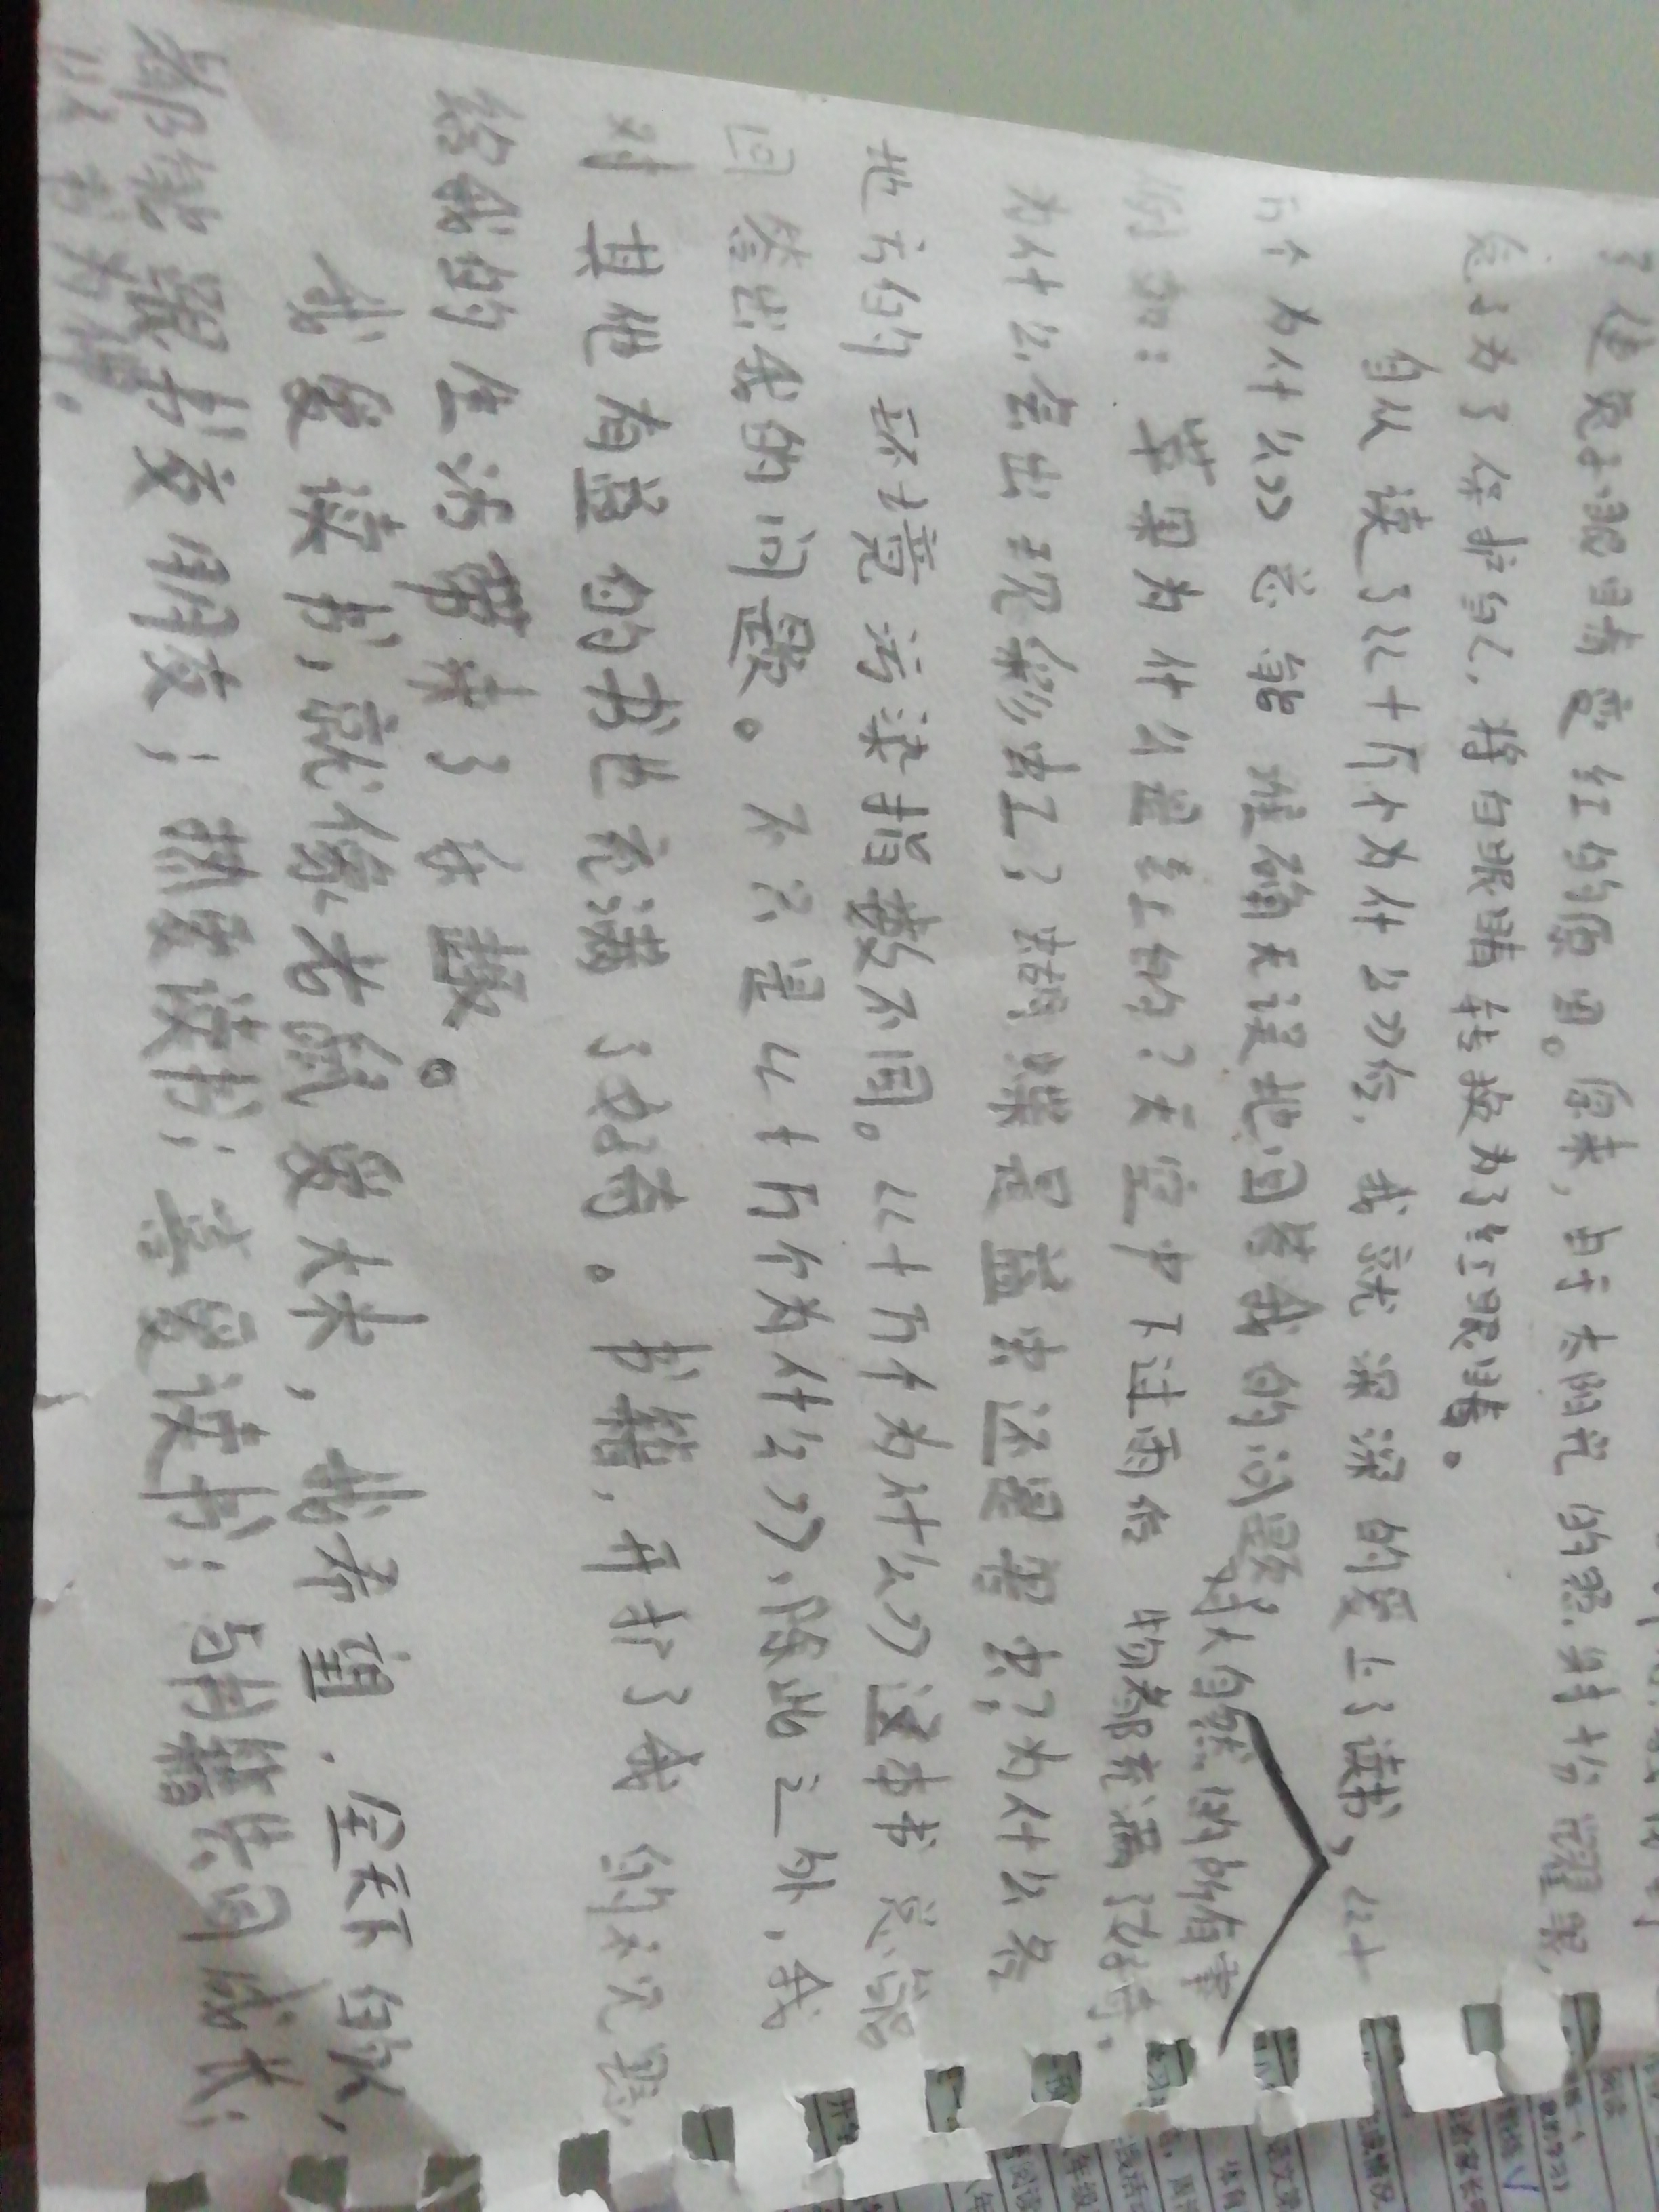 了使兔子眼睛变红的原因。原来,由于太阳光的照射十分强烈,
兔子为了保护自己,将白眼睛转换为了红眼睛。
自从读了《十万个为什么》后,我就深深的爱上了读书,《十
万个为什么》总能准确无误地回答我的问题
对大自然的所有事
物都充满了好奇,
例如:苹果为什么是红的?天空中下过雨后
为什么会出现彩虹?蝴蝶是益虫还是害虫?为什么各
地方的环境污染指数不同。《十万个为什么》这本书总能
回答出我的问题。不只是《十万个为什么》,除此之外,我
对其他有益的书也充满了好奇。书籍,开扩了我的视野
给我的生活带来了乐趣。
我爱读书,就像老鼠爱大米,我希望,全天下的人,
都能跟书交朋友;热爱读书;喜爱读书;与书籍共同成长;
以书为伴。